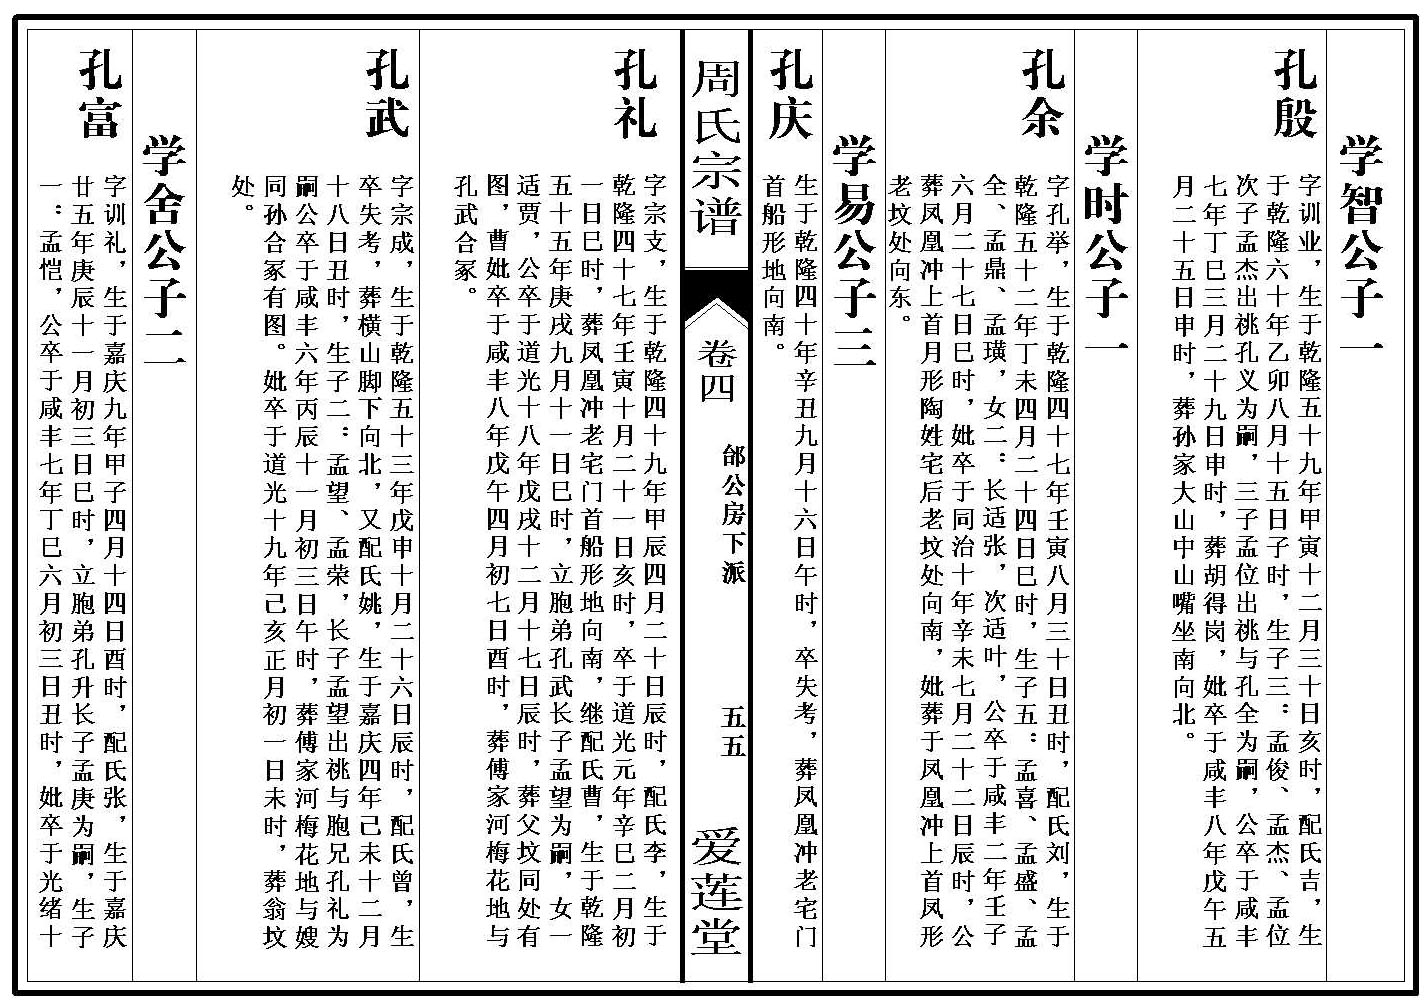 学智公子一
孔殷
字训业，生于乾隆五十九年甲寅十二月三十日亥时，配氏吉，生
于乾隆六十年乙卯八月十五日子时，生子三：孟俊、孟杰、孟位
次子孟杰出祧孔义为嗣，三子孟位出祧与孔全为嗣，公卒于咸丰
七年丁巳三月二十九日申时，葬胡得岗，妣卒于咸丰八年戊午五
月二十五日申时，葬孙家大山中山嘴坐南向北。
学时公子一
孔余
字孔举，生于乾隆四十七年壬寅八月三十日丑时，配氏刘，生于
乾隆五十二年丁未四月二十四日巳时，生子五：孟喜、孟盛、孟
全、孟鼎、孟璜，女二：长适张，次适叶，公卒于咸丰二年壬子
六月二十七日巳时，妣卒于同治十年辛未七月二十二日辰时，公
葬凤凰冲上首月形陶姓宅后老坟处向南，妣葬于凤凰冲上首凤形
老坟处向东。
学易公子三
孔庆
生于乾隆四十年辛丑九月十六日午时，卒失考，葬凤凰冲老宅门
首船形地向南。
周氏宗谱
卷四
邰公房下派
五五
爱莲堂
孔礼
字宗支，生于乾隆四十九年甲辰四月二十日辰时，配氏李，生于
乾隆四十七年壬寅十月二十一日亥时，卒于道光元年辛巳二月初
一日巳时，葬凤凰冲老宅门首船形地向南，继配氏曹，生于乾隆
五十五年庚戌九月十一日巳时，立胞弟孔武长子孟望为嗣，女一
适贾，公卒于道光十八年戊戌十二月十七日辰时，葬父坟同处有
图，曹妣卒于咸丰八年戊午四月初七日酉时，葬傅家河梅花地与
孔武合冢。
孔武
字宗成，生于乾隆五十三年戊申十月二十六日辰时，配氏曾，生
卒失考，葬横山脚下向北，又配氏姚，生于嘉庆四年己未十二月
十八日丑时，生子二：孟望、孟荣，长子孟望出祧与胞兄孔礼为
嗣公卒于咸丰六年丙辰十一月初三日午时，葬傅家河梅花地与嫂
同孙合冢有图。妣卒于道光十九年己亥正月初一日未时，葬翁坟
处。
学舍公子二
孔富
字训礼，生于嘉庆九年甲子四月十四日酉时，配氏张，生于嘉庆
廿五年庚辰十一月初三日巳时，立胞弟孔升长子孟庚为嗣，生子
一：孟恺，公卒于咸丰七年丁巳六月初三日丑时，妣卒于光绪十